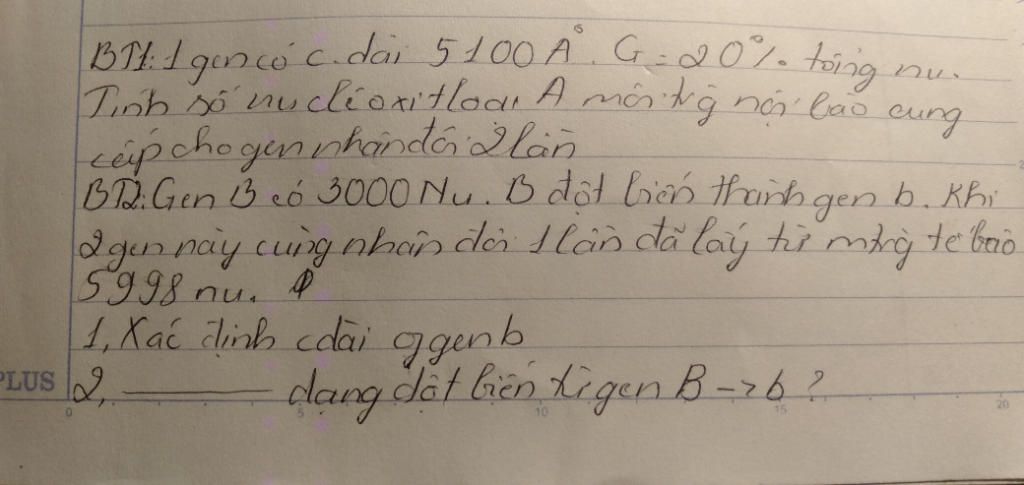 BT1: 1 gen có c. dài 5100 A°. G = 20% tổng nu.
Tính số nuclêoxit loại A môi trg nội bào cung
cấp cho gen nhân đôi 2 lần
BT2: Gen B có 3000 Nu. B đột biến thành gen b. Khi
2 gen này cùng nhân đôi 1 lần đã lấy từ mtrg tế bào
5998 nu.
1, Xác định cdài gen b
2, ——— dạng đột biến từ gen B -> b ?
PLUS
0 5 10 15 20